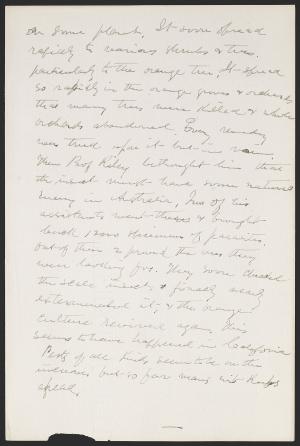 on some plant. It soon spread
rapidly to various shrubs & trees.
particularly to the orange tree. It spread
so rapidly in the orange groves & orchards
that many trees were killed & whole
orchards abandoned. Every remedy
was tried after it but in vain.
Then Prof Riley bethought him that
the insect must have some natural
enemy in Australia, Two of his
assistants went there & brought
back 12000 specimens of parasites.
out of them 2 proved the ones they
were looking for. They soon
the scale insects & finally nearly
exterminated it, & the orange
culture revived again. This
seems to have happened in California
Pests of all kinds seem to be on the
increase, but so far man